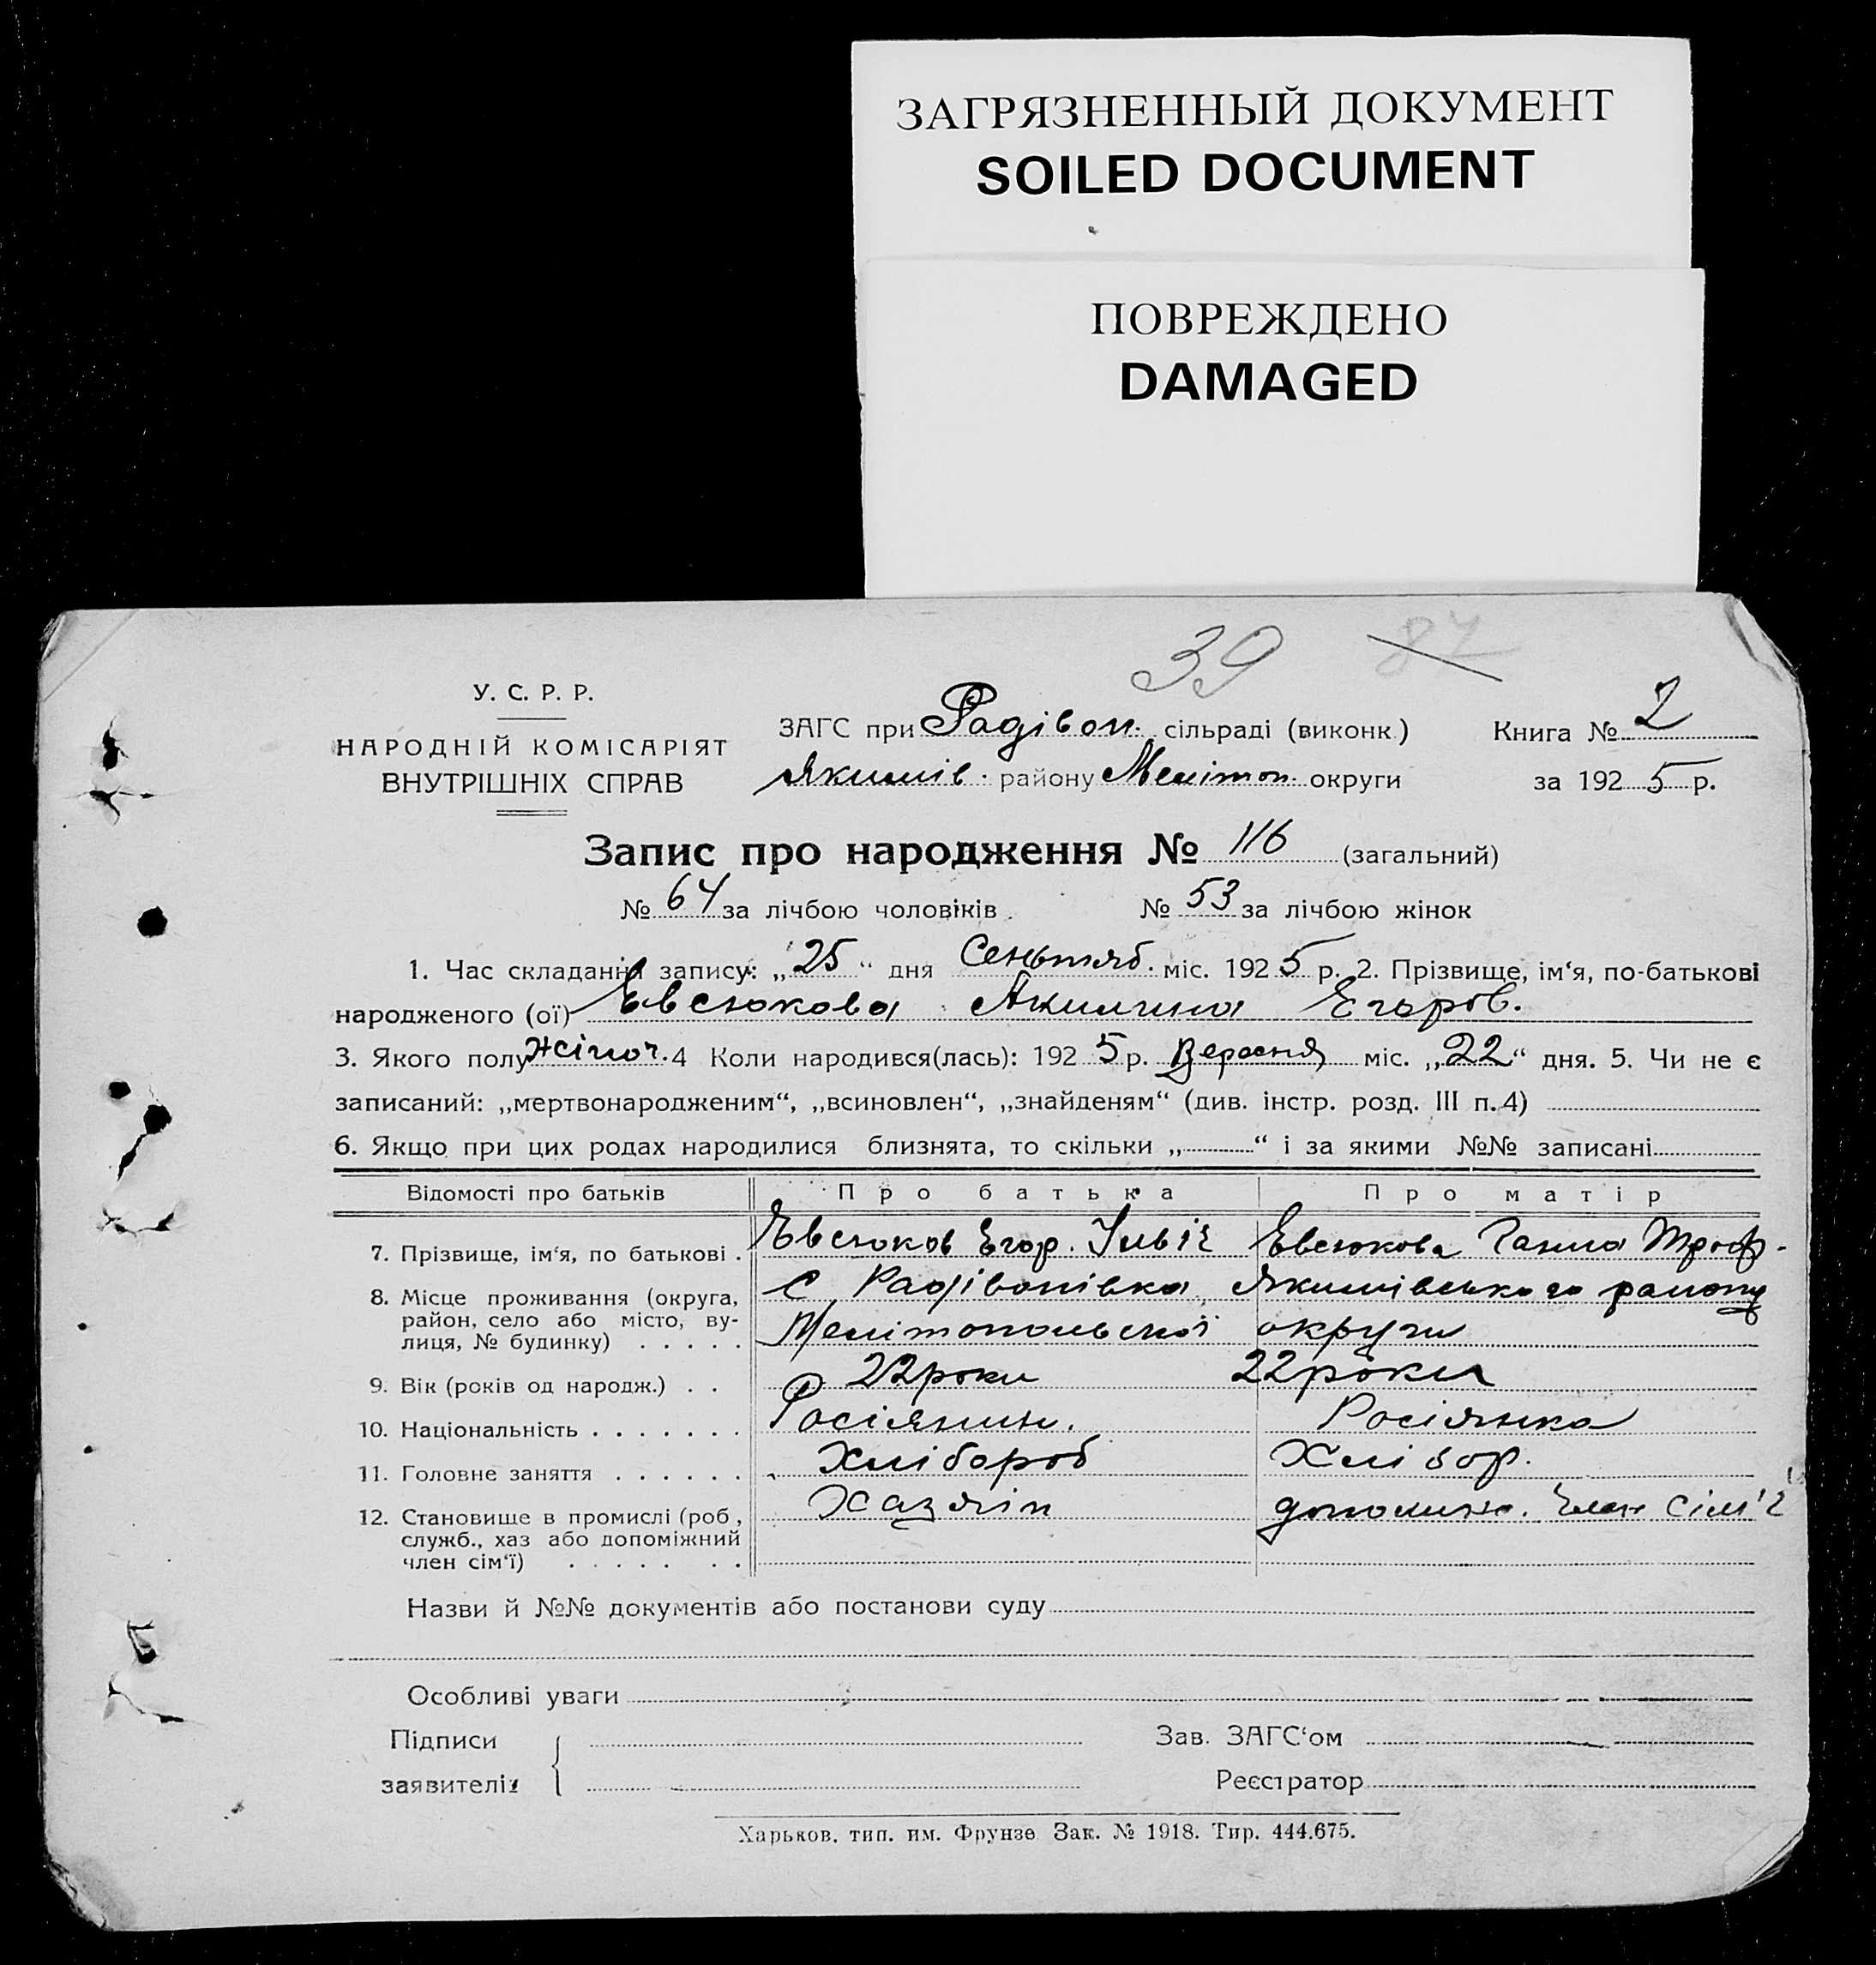 ЗАГРЯЗНЕННЫЙ ДОКУМЕНТ
SOILED DOCUMENT
ПОВРЕЖДЕНО
DAMAGED
39 87
У. С. Р. Р.
НАРОДНІЙ КОМІСАРІЯТ
ВНУТРІШНІХ СПРАВ
ЗАГС при Радівон. сільраді (виконк.) Книга № 2
Якимів. району Мелітоп. округи за 1925 р.
Запис про народження № 116 (загальний)
№ 64 за лічбою чоловіків № 53 за лічбою жінок
1. Час складання запису: „25“ дня Сеньтяб. міс. 1925 р. 2. Прізвище, ім‘я, по-батькові
народженого (ої) Евсюкова Акилина Егоров.
3. Якого полу жіноч. 4 Коли народився(лась): 1925 р. Вересня міс. „22“ дня. 5. Чи не є
записаний: „мертвонародженим“, „всиновлен“, „знайденям“ (див. інстр. розд. III п. 4)
6. Якщо при цих родах народилися близнята, то скільки „ “ і за якими №№ записані
Відомості про батьків Про батька Про матір
7. Прізвище, ім‘я, по батькові . Евсюков Егор. Ільіч Евсюкова Ганна Троф.
8. Місце проживання (округа, район, село або місто, ву- лиця, № будинку) . . . . . С Радівонівка Якимівського району
Мелітопольскої округи
9. Вік (років од народж.) . . 22 роки 22 роки
10. Національність . . . . . . . Росіянин. Росіянка
11. Головне заняття . . . . . . Хлібороб Хлібор.
12. Становище в промислі (роб, служб., хаз або допоміжний член сім‘ї) . . . . . . . Хазяїн допоміж. член сім'ї
Назви й №№ документів або постанови суду
Особливі уваги
Підписи Зав. ЗАГС‘ом
заявителів Реєстратор
Харьков. тип. им. Фрунзе Зак. № 1918. Тир. 444.675.